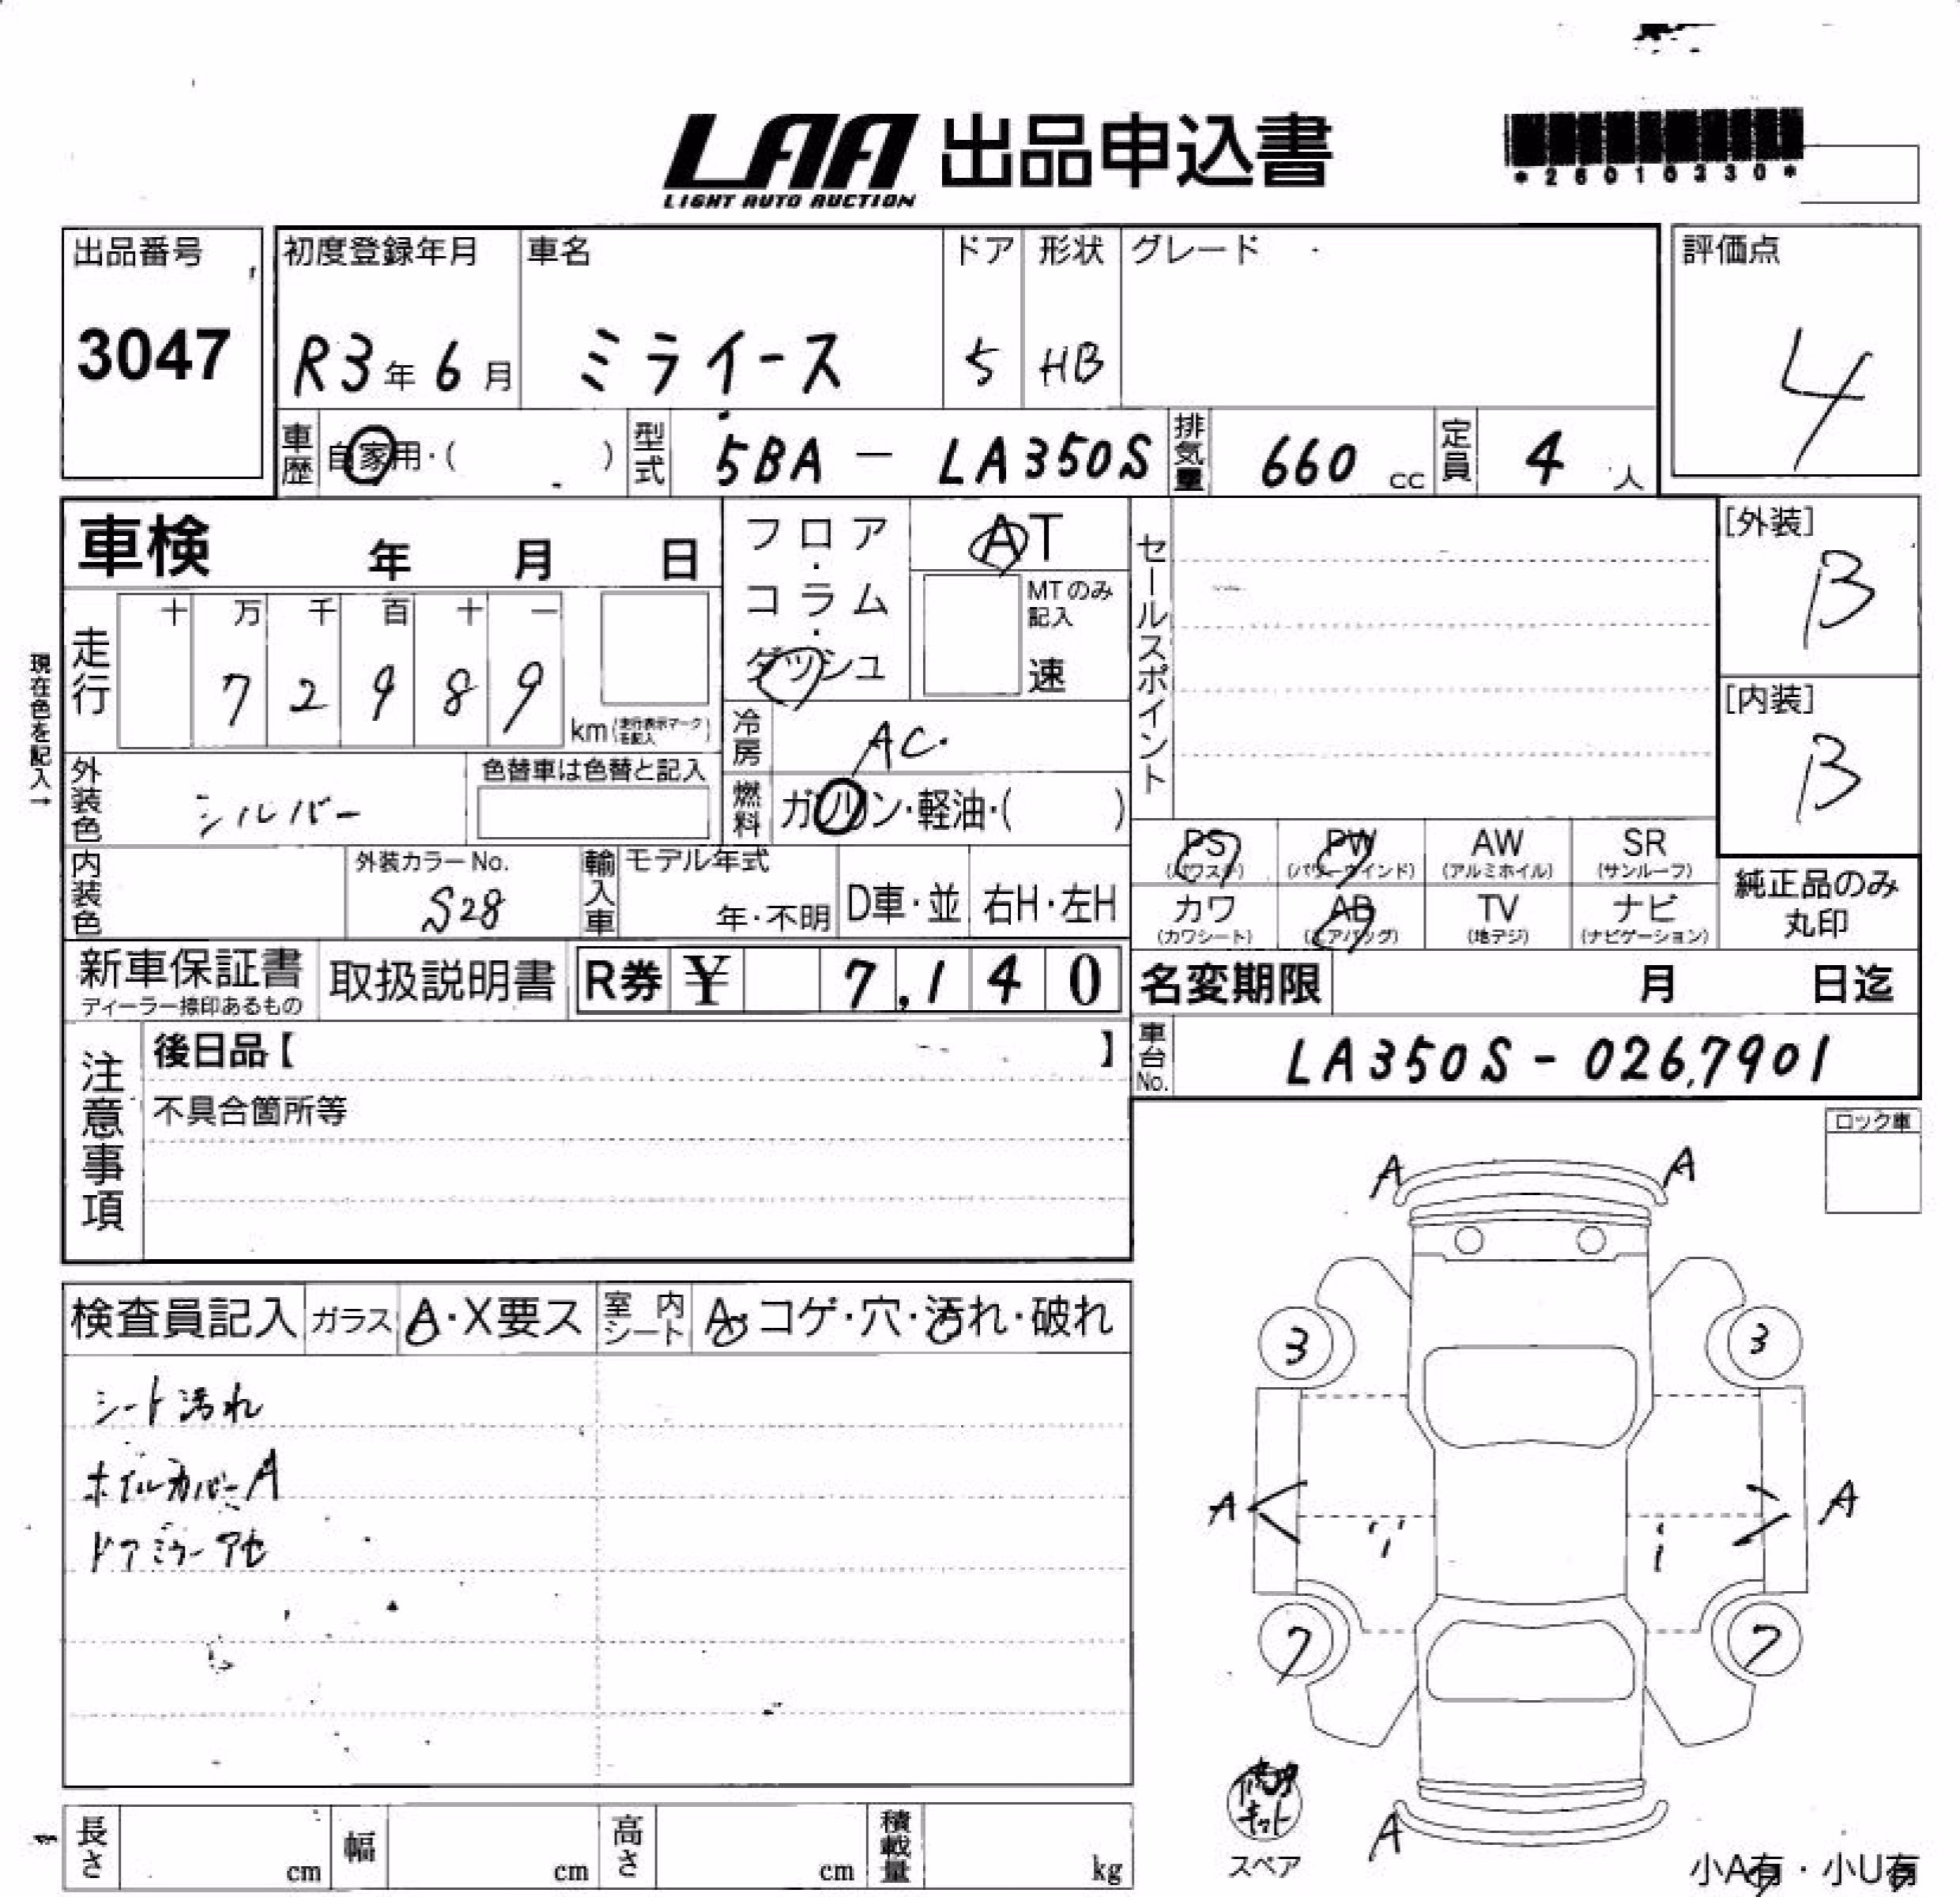 LAA 出品申込書
LIGHT AUTO AUCTION
出品番号
3047
初度登録年月
R3年6月
車名
ミライース
ドア
5
形状
HB
グレード
評価点
4
車歴
自家用・( )
型式
5BA - LA350S
排気量
660 cc
定員
4 人
車検 年 月 日
フロア・コラム・ダッシュ
AT
MTのみ記入
速
セールスポイント
[外装]
B
[内装]
B
現在色を記入→
走行
十 万 千 百 十 一
7 2 9 8 9
km(走行表示マークを記入)
冷房
AC
燃料
ガソリン・軽油・( )
外装色
シルバー
色替車は色替と記入
内装色
外装カラーNo.
S28
輸入車
モデル年式
年・不明
D車・並
右H・左H
PS
(パワステ)
PW
(パワーウインド)
AW
(アルミホイル)
SR
(サンルーフ)
カワ
(カワシート)
AB
(エアバッグ)
TV
(地デジ)
ナビ
(ナビゲーション)
純正品のみ
丸印
新車保証書
ディーラー捺印あるもの
取扱説明書
R券 ¥ 7,140
名変期限 月 日迄
車台No.
LA350S-0267901
注意事項
後日品【 】
不具合箇所等
ロック車
検査員記入
ガラス
A・X要ス
室内シート
A・コゲ・穴・汚れ・破れ
シート汚れ
ホイルカバーA
ドアミラーアセ
A A
3 3
A A
7 7
A
修理キット
スペア
小A有・小U有
長さ cm
幅 cm
高さ cm
積載量 kg